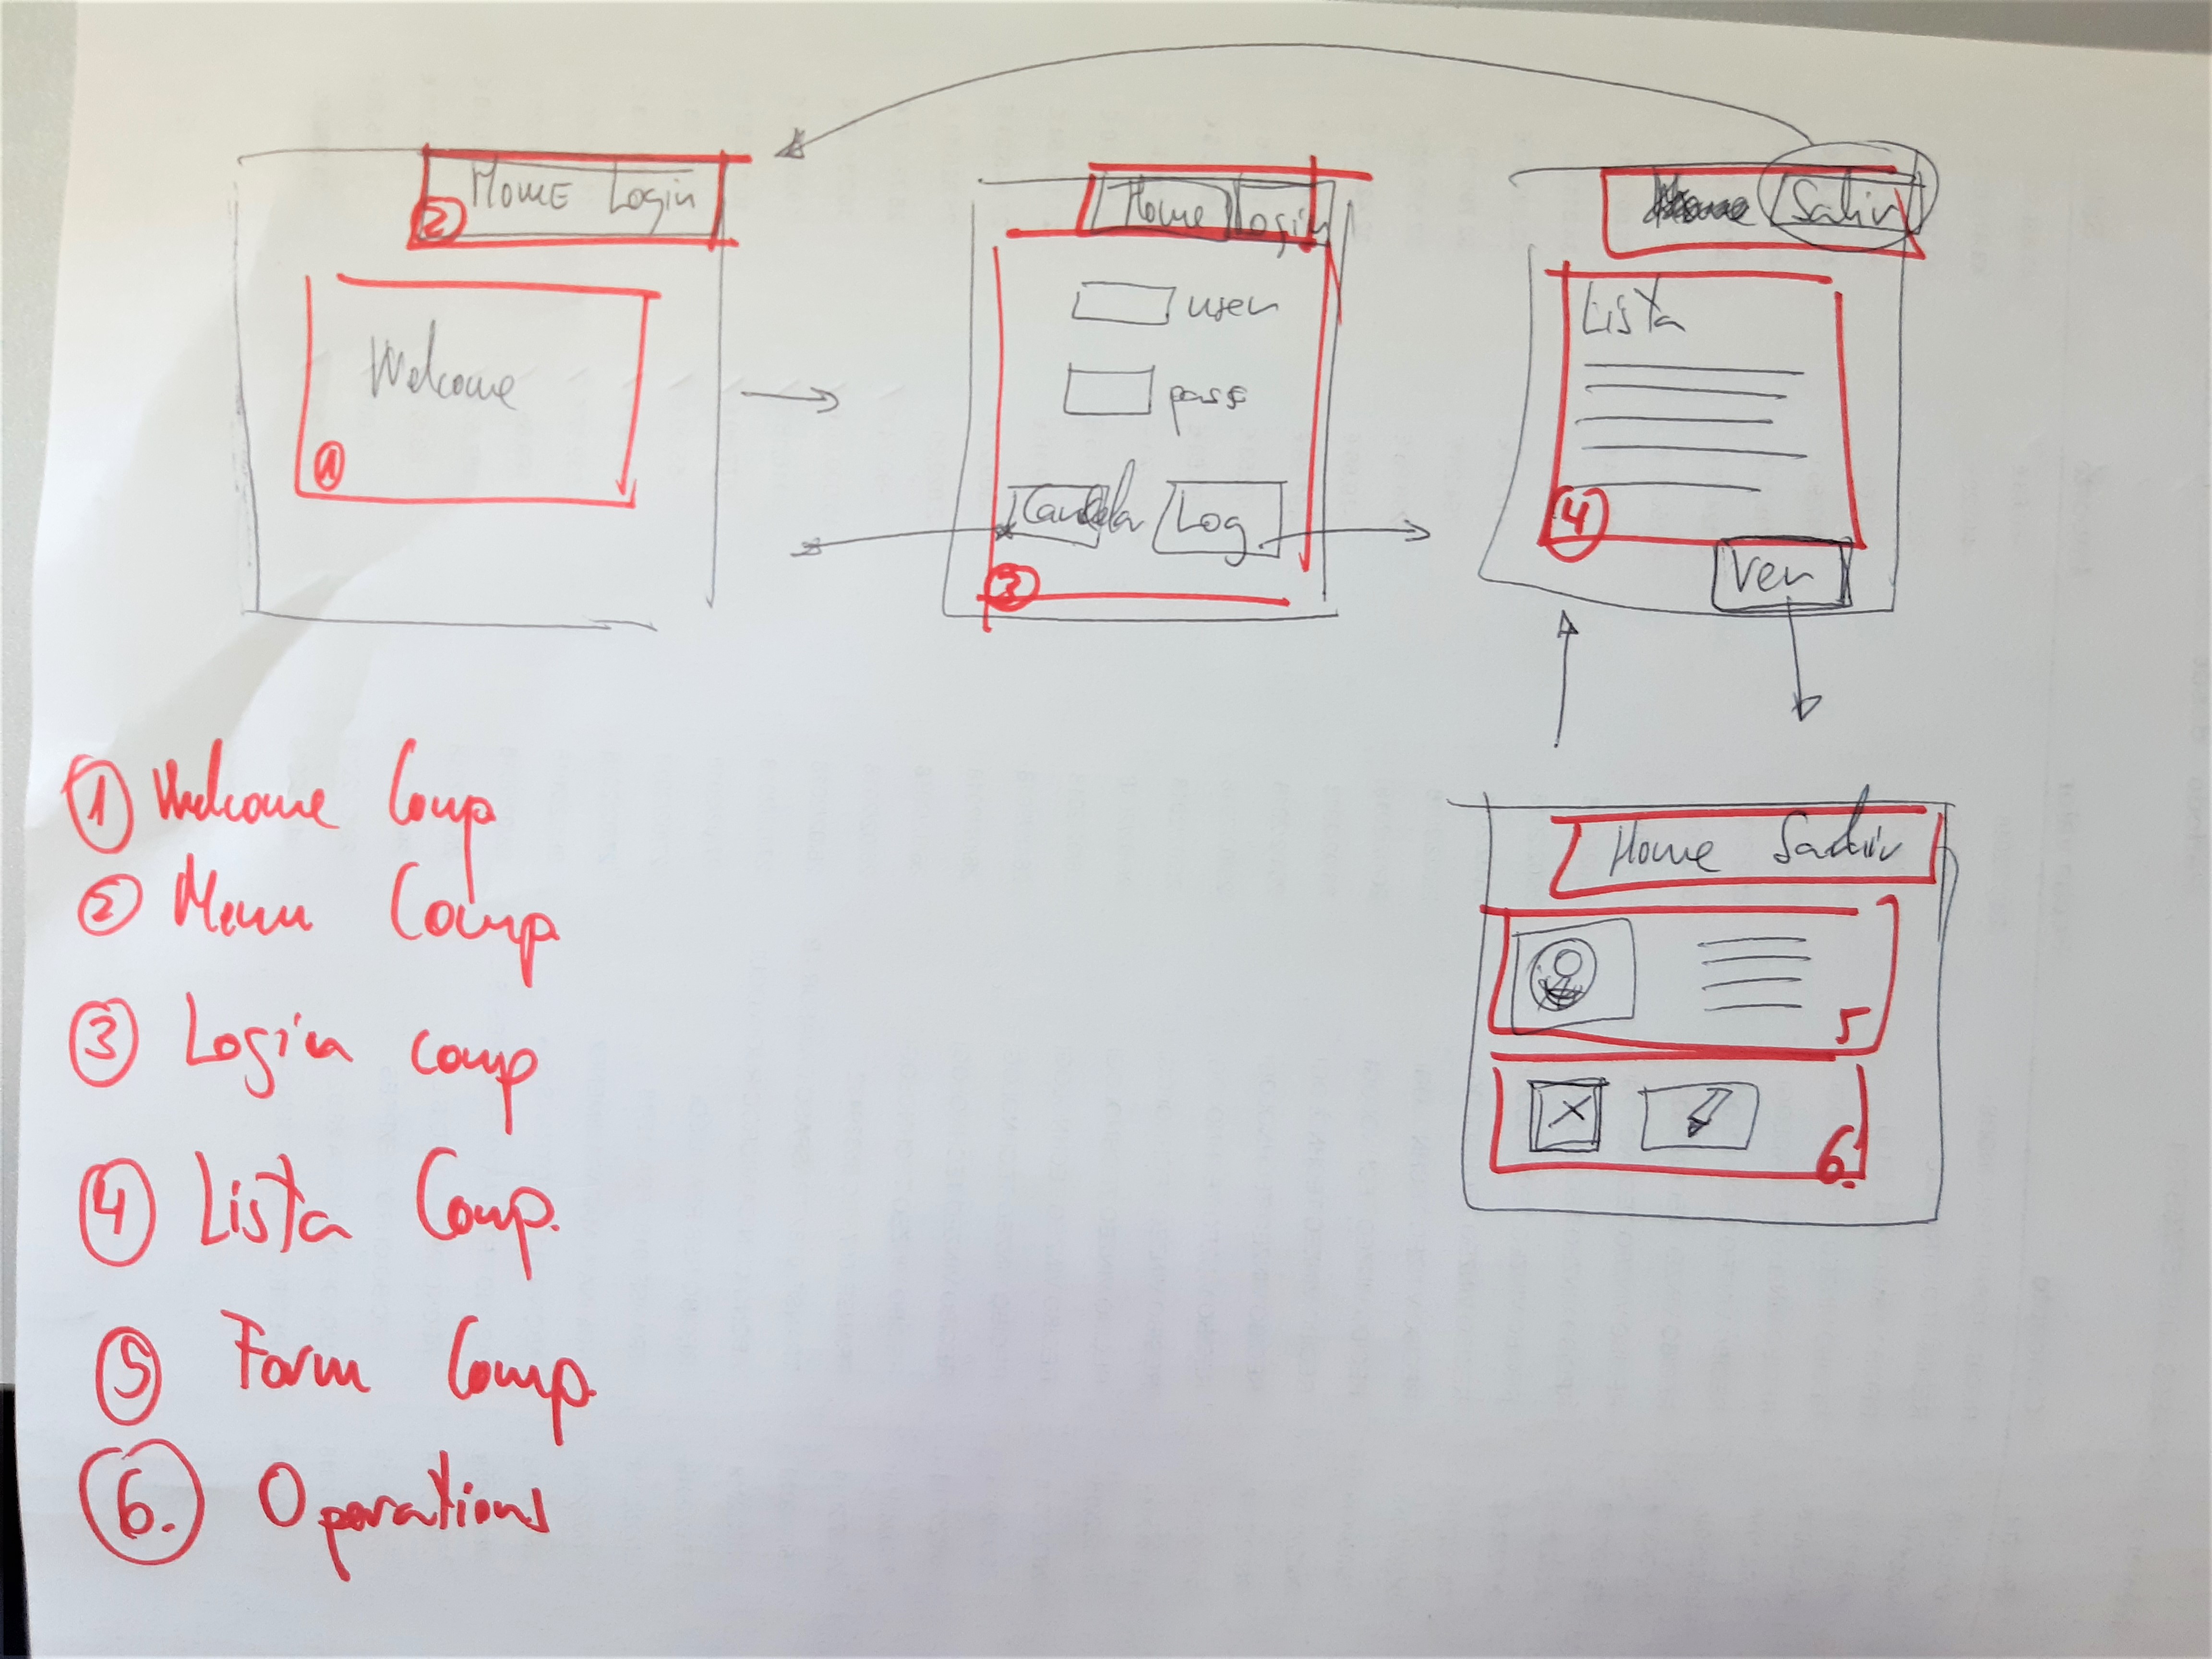 Home Login
2
Welcome
1
Home Login
user
pass
Cancelar Log
3
Home Salir
Lista
4
Ver
Home Salir
5
6.
1 Welcome Comp
2 Menu Comp
3 Login comp
4 Lista Comp.
5 Form Comp.
6. Operations